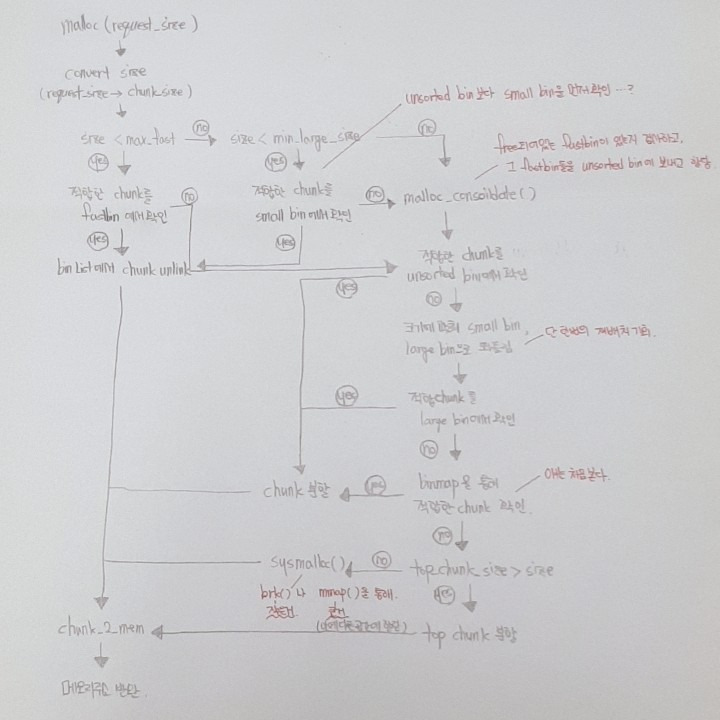 malloc (request_size)
convert size
(request_size → chunk_size)
unsorted bin 보다 small bin을 먼저 확인 ...?
size < max_fast
no
size < min_large_size
no
free되어있는 fastbin이 있는지 검사하고,
그 fastbin들을 unsorted bin에 보내고 합당.
yes
yes
적합한 chunk를
fastbin 에서 확인
no
적합한 chunk를
small bin에서 확인
no
malloc_consolidate()
yes
yes
bin list에서 chunk unlink
적합한 chunk를
unsorted bin에서 확인
yes
no
크기에 small bin,
large bin으로
단 한번의 재배치 기회.
적합 chunk를
large bin에서 확인
yes
no
chunk 분할
yes
binmap을 통해
적합한 chunk 확인.
얘는 처음본다.
no
sysmalloc()
no
top chunk_size > size
brk() 나 mmap()을 통해.
yes
chunk_2_mem
top chunk 분할
메모리주소 반환.